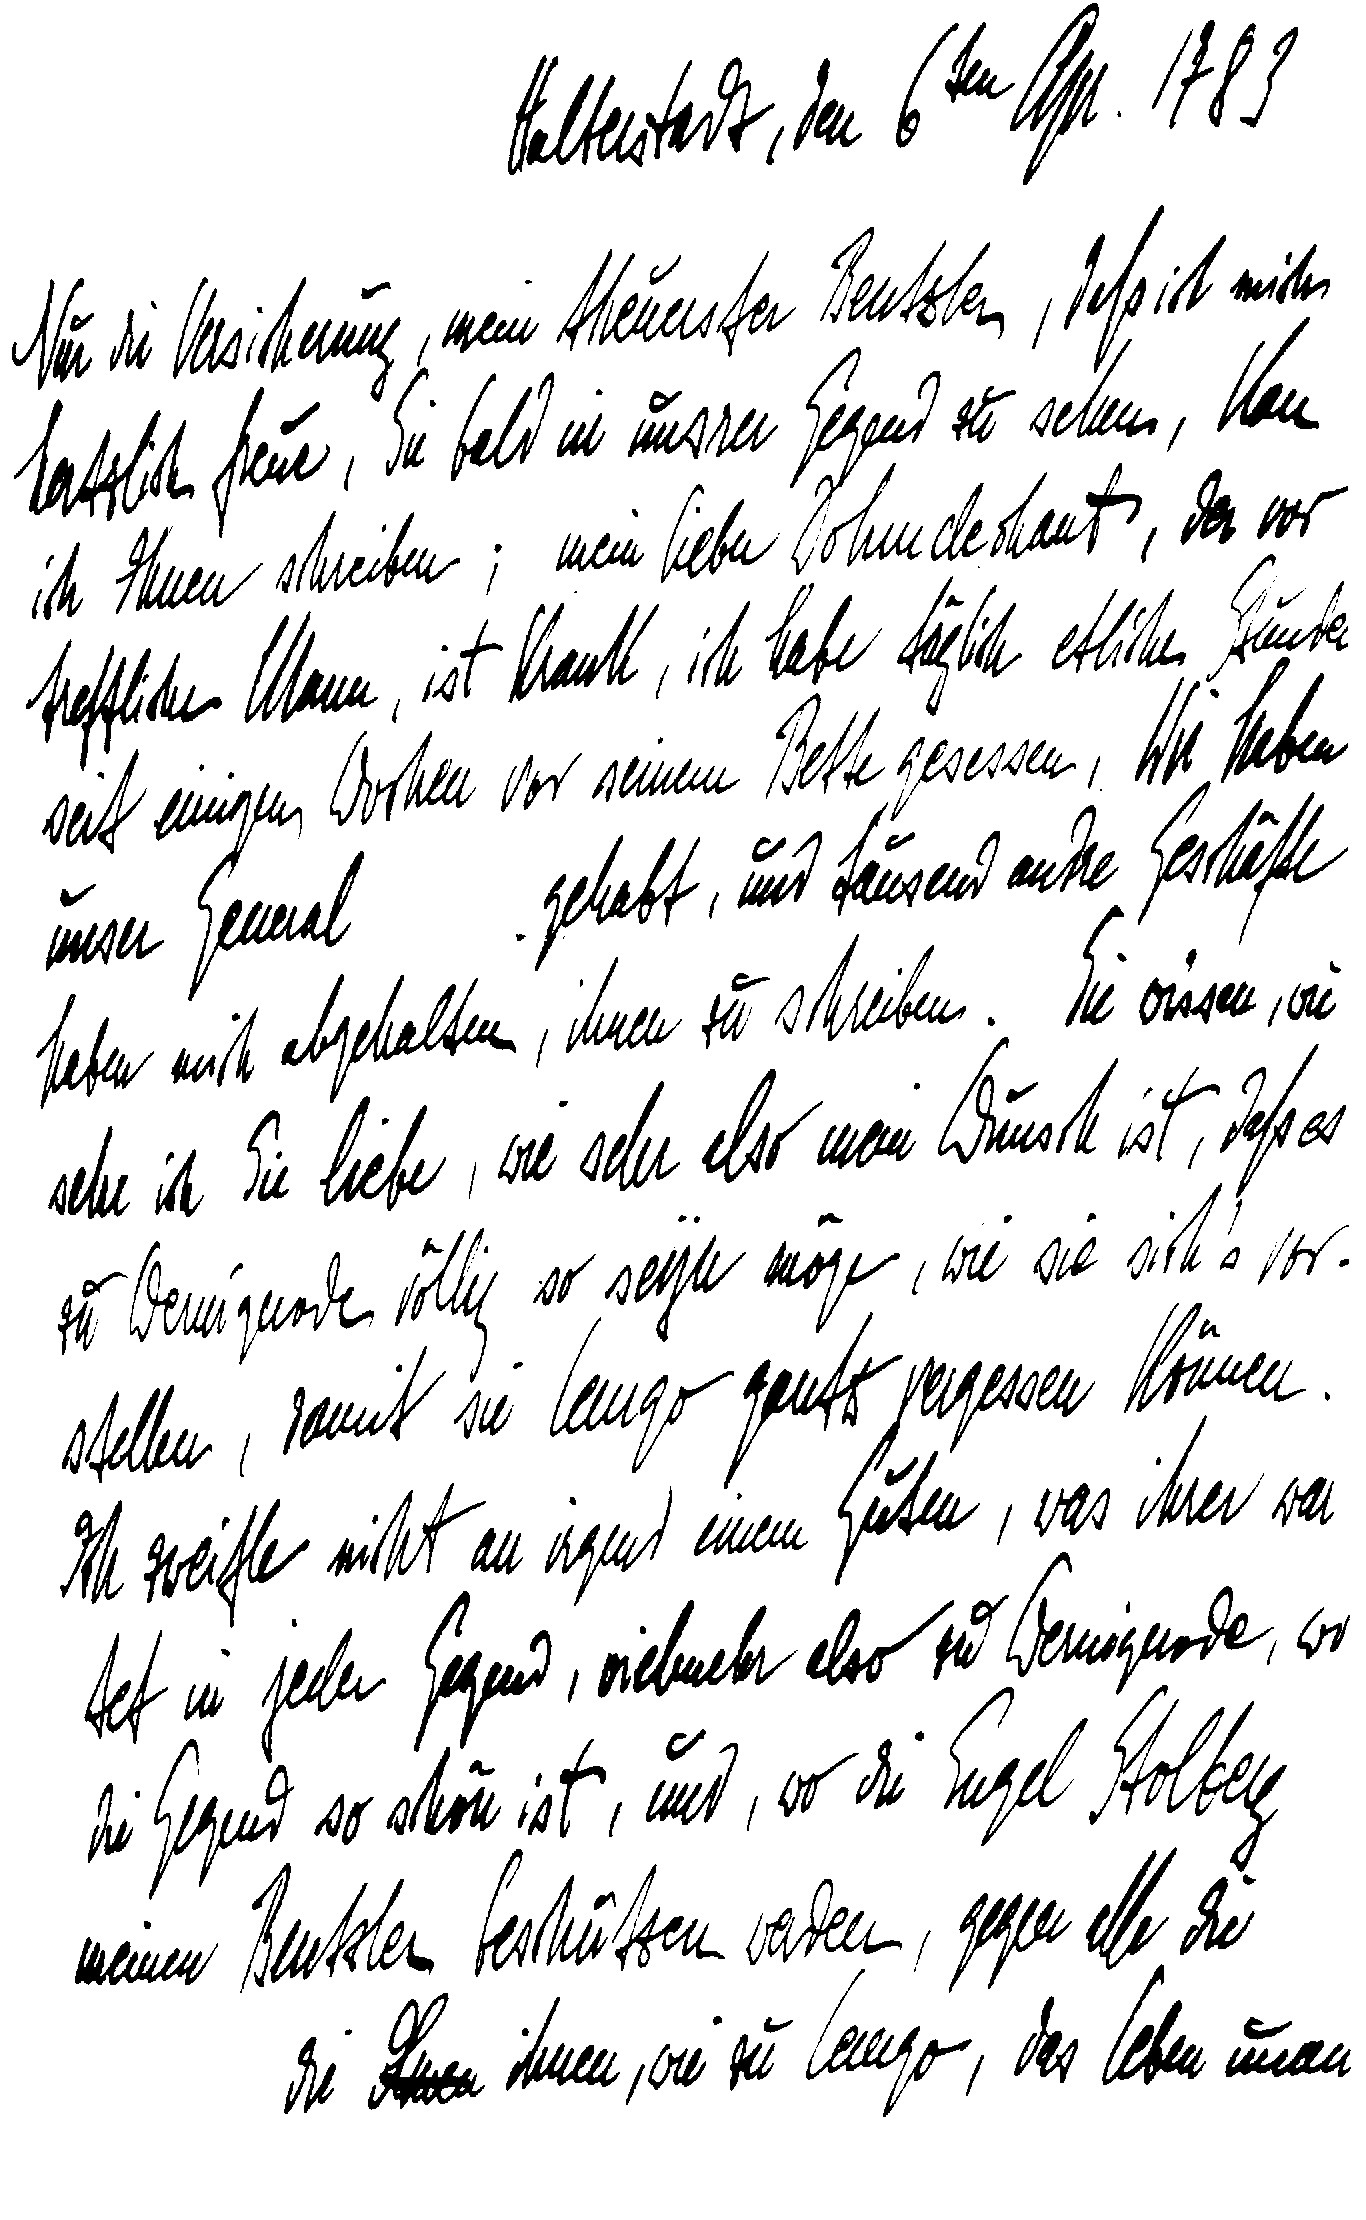 Halberstadt, den 6ten Apr. 1783
Nur die Versicherung, mein theuerster Bentzler, daß ich mich
hertzlich freue, Sie bald in unsrer Gegend zu sehen, kan
ich Ihnen schreiben; mein lieber Dohmdechant, der vor
trefliche Mann, ist krank, ich habe täglich etliche Stunden
seit einigen Wochen vor seinem Bette gesessen, Wir haben
unser General gehabt, und tausend andre Geschäfte
haben mich abgehalten, ihnen zu schreiben. Sie wissen, wie
sehr ich Sie liebe, wie sehr also mein Wunsch ist, daß es
zu Wernigerode völlig so seyn möge, wie sie sich's vor-
stellen, damit sie Lemgo gantz vergessen können.
Ich zweifle nicht an irgend einem Guten, was ihrer war
tet in jeder Gegend, vielmehr also zu Wernigerode, wo
die Gegend so schön ist, und, wo die Engel Stolberg
meinen Bentzler beschützen werden, gegen alle die
die ihnen, wie zu Lemgo, das Leben unan